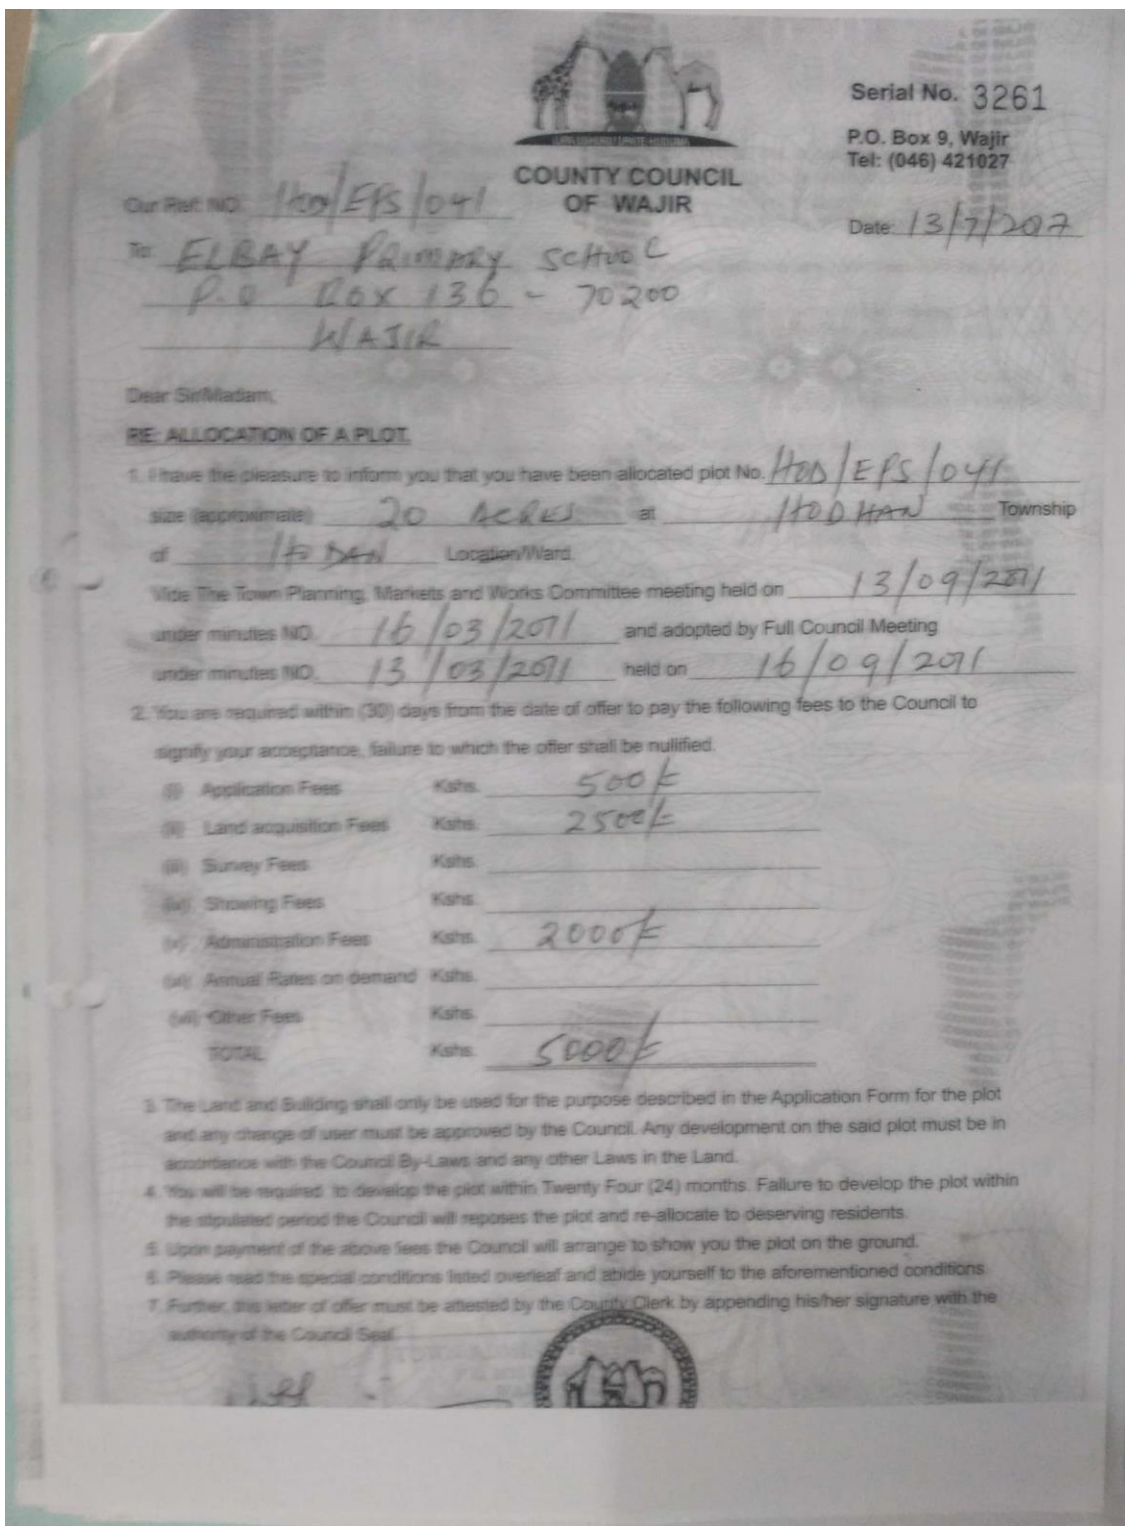 Serial No. 3261
P.O. Box 9, Wajir
Tel: (046) 421027
COUNTY COUNCIL
OF WAJIR
Our Ref: NO. HOD/EPS/041
Date: 13/7/2017
To: ELBAY PRIMARY SCHOOL
P.O BOX 136 - 70200
WAJIR
Dear Sir/Madam,
RE: ALLOCATION OF A PLOT.
1. I have the pleasure to inform you that you have been allocated plot No. HOD/EPS/041
size (approximate) 20 ACRES at HODHAN Township
of HODAN Location/Ward.
Vide The Town Planning, Markets and Works Committee meeting held on 13/09/2011
under minutes NO. 16/03/2011 and adopted by Full Council Meeting
under minutes NO. 13/03/2011 held on 16/09/2011
2. You are required within (30) days from the date of offer to pay the following fees to the Council to
signify your acceptance, failure to which the offer shall be nullified.
(i) Application Fees Kshs. 500/=
(ii) Land acquisition Fees Kshs. 2500/=
(iii) Survey Fees Kshs.
(iv) Showing Fees Kshs.
(v) Administration Fees Kshs. 2000/=
(vi) Annual Rates on demand Kshs.
(vii) Other Fees Kshs.
TOTAL Kshs. 5000/=
3. The Land and Building shall only be used for the purpose described in the Application Form for the plot
and any change of user must be approved by the Council. Any development on the said plot must be in
accordance with the Council By-Laws and any other Laws in the Land.
4. You will be required to develop the plot within Twenty Four (24) months. Failure to develop the plot within
the stipulated period the Council will reposes the plot and re-allocate to deserving residents.
5. Upon payment of the above fees the Council will arrange to show you the plot on the ground.
6. Please read the special conditions listed overleaf and abide yourself to the aforementioned conditions.
7. Further, this letter of offer must be attested by the County Clerk by appending his/her signature with the
authority of the Council Seal.